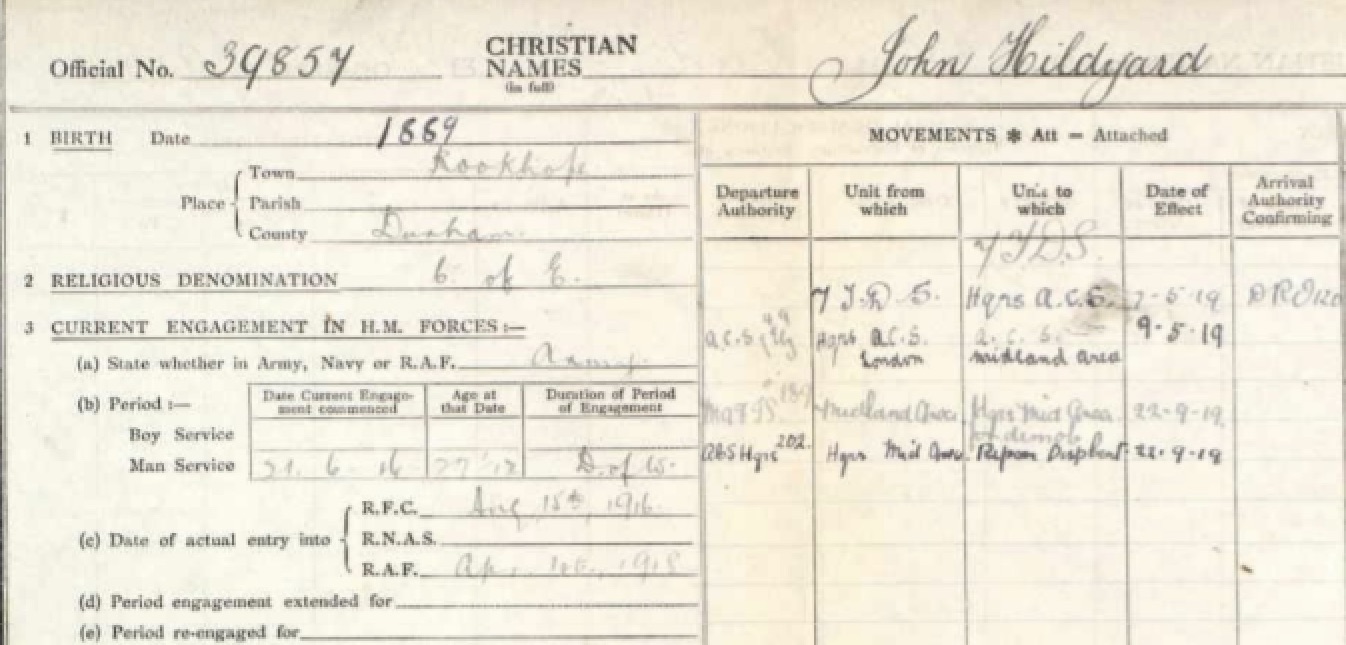 Official No. 39857 CHRISTIAN NAMES (in full) John Hildyard
1 BIRTH Date 1889
Place Town Rookhope
Parish
County Durham
2 RELIGIOUS DENOMINATION C. of E.
3 CURRENT ENGAGEMENT IN H.M. FORCES :—
(a) State whether in Army, Navy or R.A.F. Army
(b) Period :— Date Current Engagement commenced Age at that Date Duration of Period of Engagement
Boy Service
Man Service 21. 6. 16 D. of W.
(c) Date of actual entry into R.F.C. Aug 15th, 1916.
R.N.A.S.
R.A.F. Ap. 1st, 1918
(d) Period engagement extended for
(e) Period re-engaged for
MOVEMENTS * Att = Attached
Departure Authority Unit from which Unit to which Date of Effect Arrival Authority Confirming
7 T.D.S.
7 T.D.S. Hqrs A.C.S. 7-5-19 DRO
A.C.S. Hqrs A.C.S. London A.C.S. Midland Area 9-5-19
Midland Area Hqrs Mid Area 22-9-19
Hqrs 202. Hqrs Mid Area Ripon Displ Cent 22-9-19